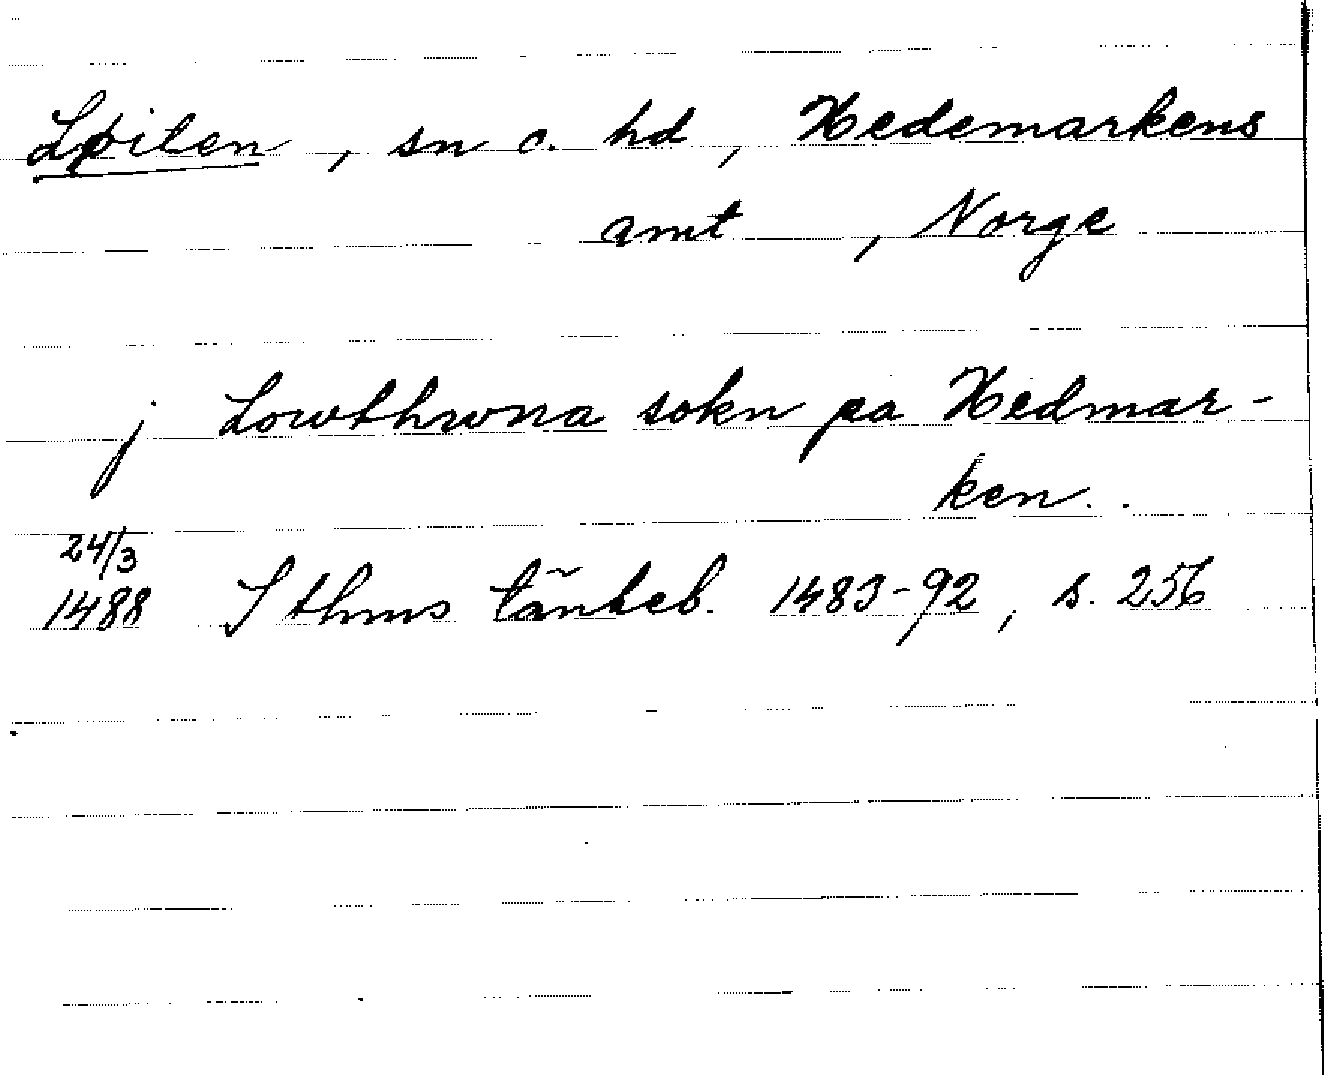 Løiten, sn o. hd, Hedemarkens
amt, Norge
j Lowthwna sokn pa Hedmar-
ken..
24/3
1488 Sthms tänkeb. 1483-92, s. 256